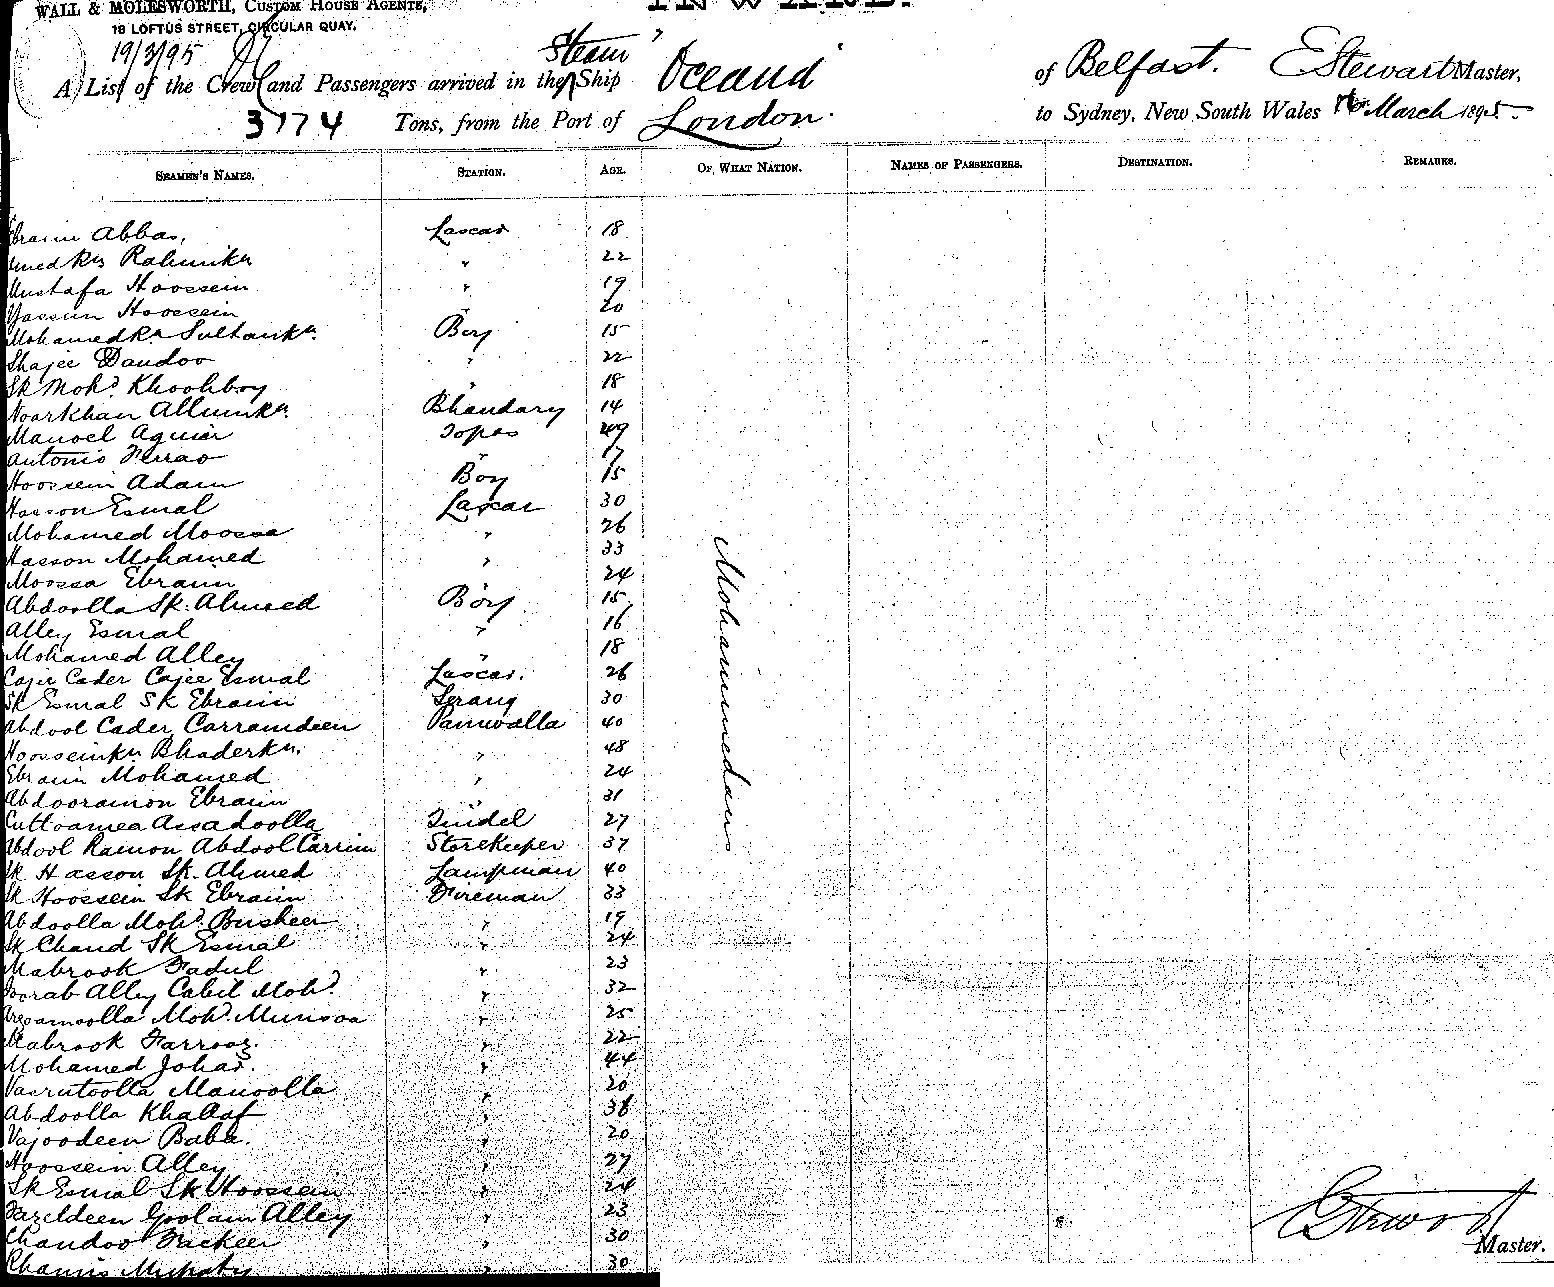 WALL & MOLESWORTH, CUSTOM HOUSE AGENTS,
18 LOFTUS STREET, CIRCULAR QUAY.
INWARD.
19/3/95
Steam
A List of the Crew and Passengers arrived in the Ship Oceana of Belfast. E Stewart Master,
3774 Tons, from the Port of London. to Sydney, New South Wales March 1895
SEAMEN'S NAMES. STATION. AGE. OF WHAT NATION. NAMES OF PASSENGERS. DESTINATION. REMARKS.
Ebraim Abbas, Lascar 18
Rahimkn " 22
Mustafa Hoossein " 19
Hoossein 20
Mohamedkn Sultankn. Boy 15
Shajee Daudoo " 22
Sk Mohd. Khoohboy " 18
Noorkhan Allumkn. Bhandary 14
Manoel Aguiar Topas 49
Antonio Ferrao " 17
Hoossein Adam Boy 15
Hasson Esmal Lascar 30
Mohamed Moossa " 26
Hasson Mohamed " 33
Moossa Ebraim 24
Abdoolla Sk. Ahmed Boy 15
Alley Esmal " 16
Mohamed Alley " 18
Cajee Cader Cajee Esmal Lascar. 26
Sk Esmal Sk Ebraim Serang 30
Abdool Cader Carramdeen Paniwalla 40
Hoosseinkn Bhaderkn. " 48
Ebraim Mohamed " 24
Abdooramon Ebraim " 31
Assadoolla Tindel 27
Abdool Ramon Abdool Carrim Storekeeper 37
Sk Hasson Sk. Ahmed Lampman 40
Sk Hoossein Sk Ebraim Fireman 33
Abdoolla Mohd. Busheer " 19
Sk Chand Sk Esmal " 24
Mabrook Fadul " 23
Alley Cabil Mohd. " 32
Mohd. Munsoa " 25
Mabrook Farrooz. " 22
Mohamed Johar. " 44
Manoolla " 20
Abdoolla Khallaf " 38
Vajoodeen Baba. " 20
Hoossein Alley " 27
Sk Esmal Sk Hoossein " 24
Fazeldeen Goolam Alley " 23
Chandoo Fackeer " 30
" 30
Mohammedans
E Stewart
Master.